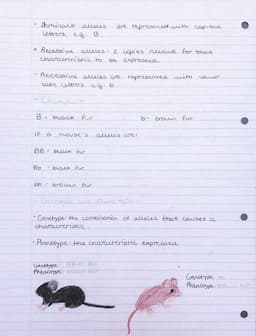 · Dominant alleles are represented with capital
letters, e.g. B.
· Recessive alleles: 2 copies needed for
characteristic to be expressed.
· Recessive alleles are represented with lower
case letters e.g. b
B - black fur b - brown fur
If a mouse's alleles are:
BB - black fur
Bb - black fur
bb - brown fur
· Genotype: the combination of alleles that causes a
characteristic.
· Phenotype: the characteristic expressed.
Genotype:
Phenotype:
Genotype:
Phenotype: